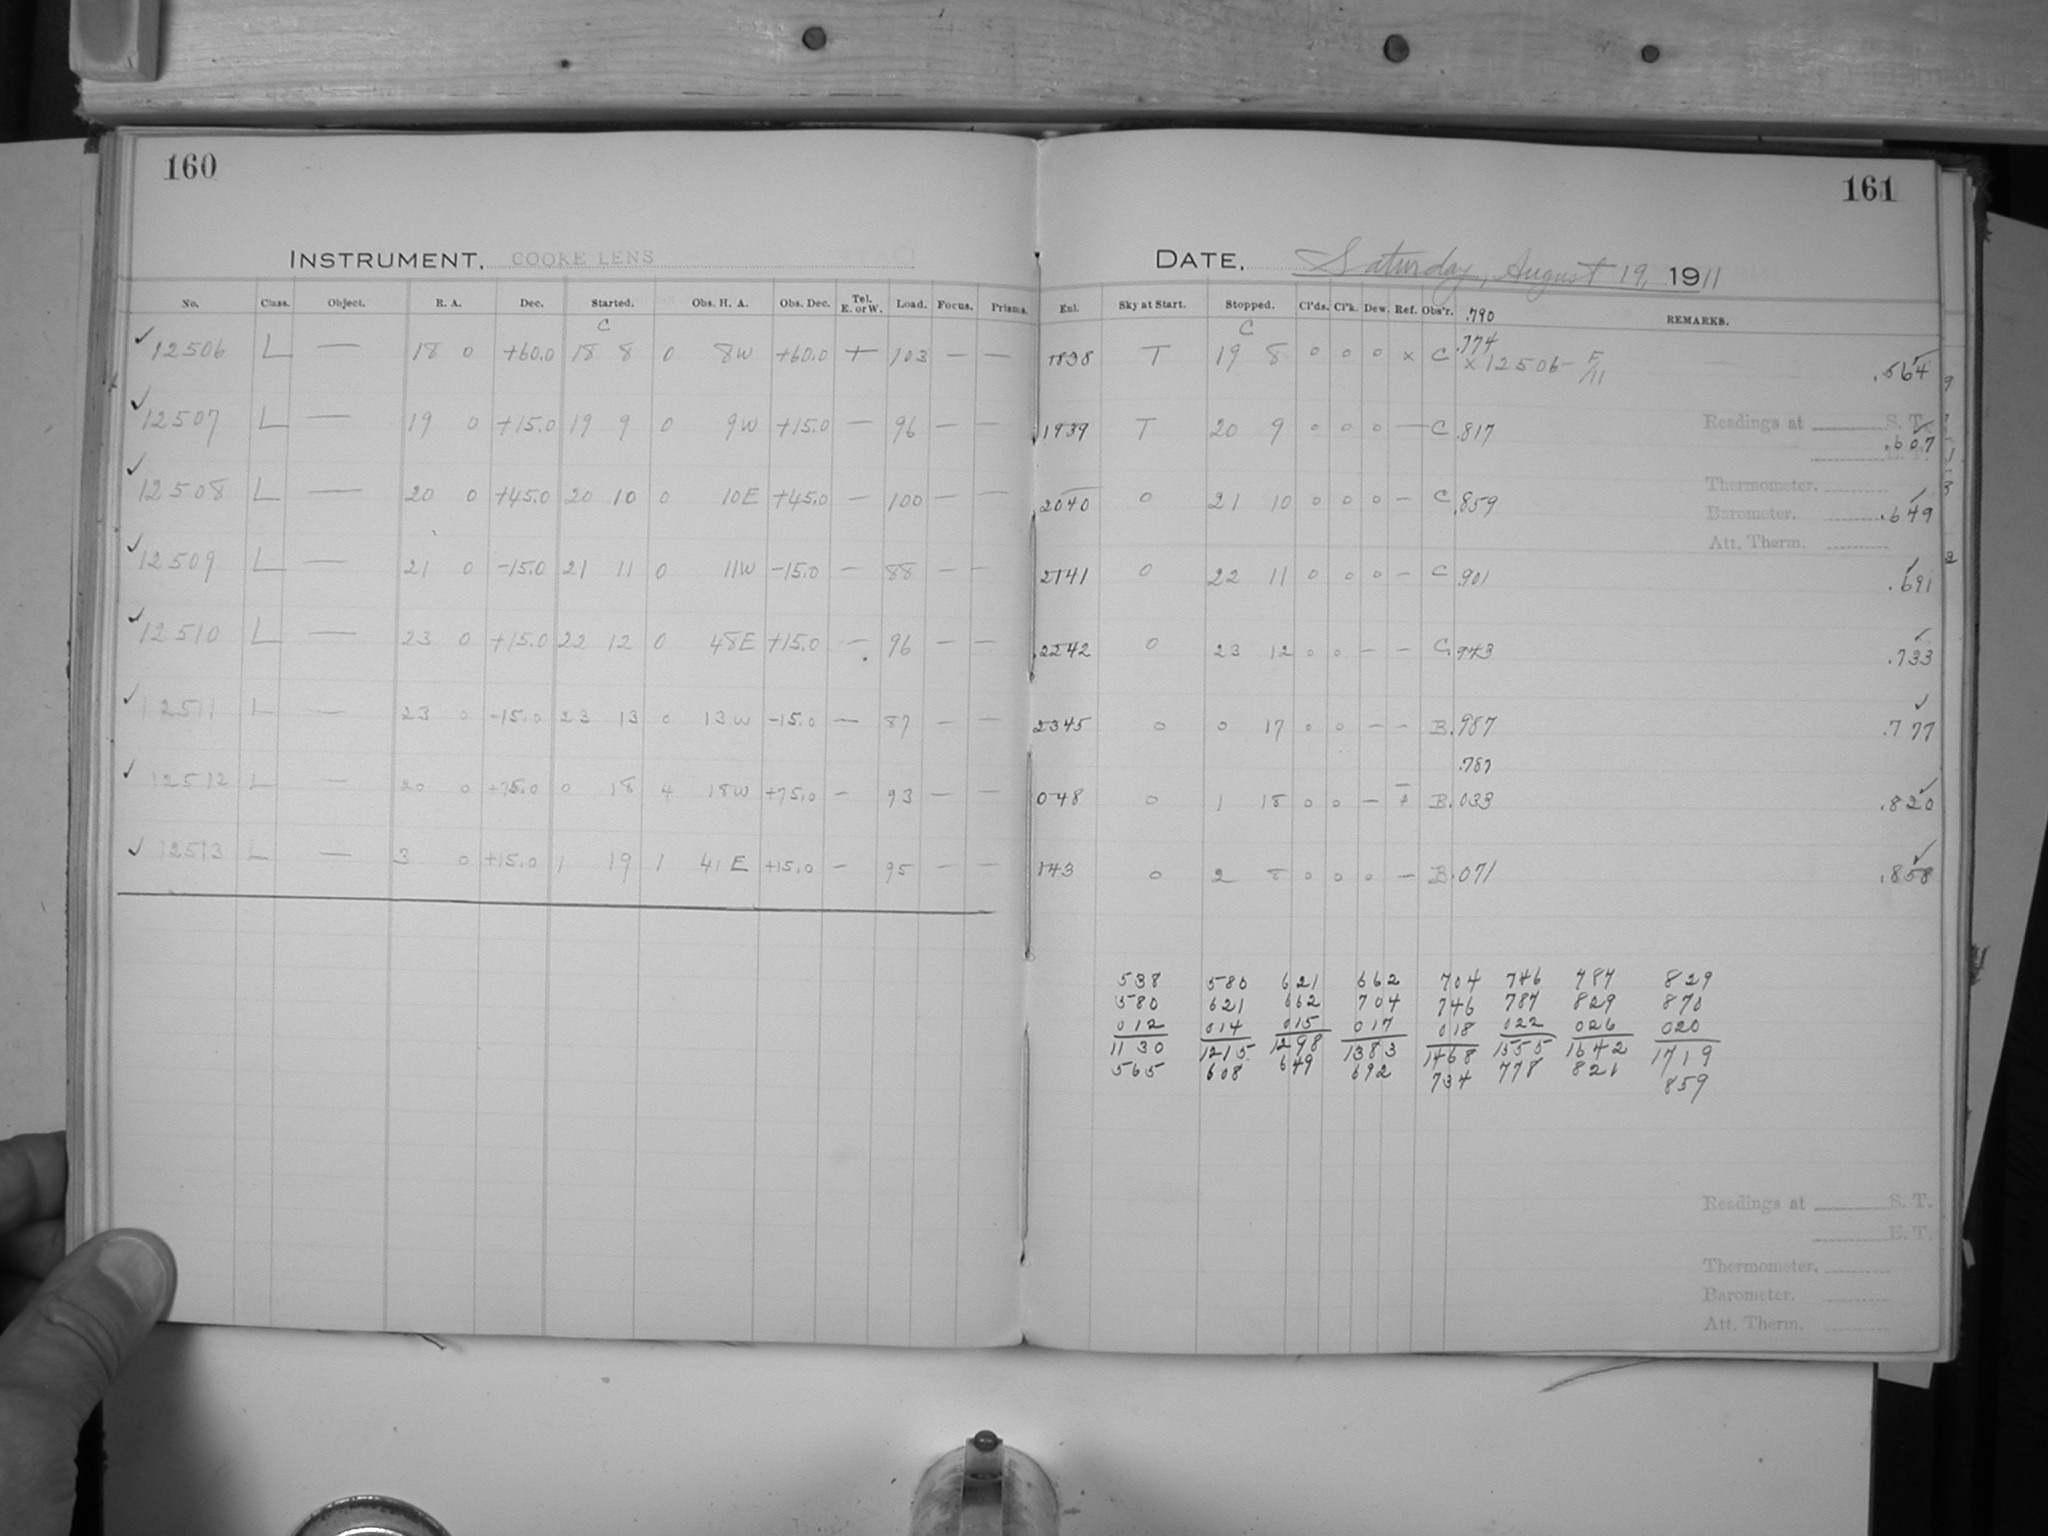 160
INSTRUMENT, COOKE LENS
No. Class. Object. R. A. Dec. Started. Obs. H. A. Obs. Dec. Tel. E. or W. Load. Focus. Prisms.
C
✓ 12506 L — 18 0 +60.0 18 8 0 8W +60.0 + 103 — —
✓ 12507 L — 19 0 +15.0 19 9 0 9W +15.0 — 96 — —
✓ 12508 L — 20 0 +45.0 20 10 0 10E +45.0 — 100 — —
✓ 12509 L — 21 0 -15.0 21 11 0 11W -15.0 — 88 — —
✓ 12510 L — 23 0 +15.0 22 12 0 48E +15.0 — 96 — —
✓ 12511 L — 23 0 -15.0 23 13 0 13W -15.0 — 87 — —
✓ 12512 L — 20 0 +75.0 0 18 4 18W +75.0 — 93 — —
✓ 12513 L — 3 0 +15.0 1 19 1 41E +15.0 — 95 — —
161
DATE, Saturday, August 19, 1911
Exl. Sky at Start. Stopped. Cl'ds. Cl'k. Dew. Ref. Obs'r. .790 REMARKS.
C
.774
1838 T 19 8 0 0 0 × C × 12506 - F/11 .564 ✓
1939 T 20 9 0 0 0 — C .817 .607 ✓
2040 0 21 10 0 0 0 — C .859 .649 ✓
2141 0 22 11 0 0 0 — C .901 .691 ✓
2242 0 23 12 0 0 — — C .943 .733 ✓
2345 0 0 17 0 0 — — B .987 .777 ✓
.787
048 0 1 18 0 0 — B .033 .820 ✓
143 0 2 8 0 0 0 — B .071 .858 ✓
Readings at S. T.
Thermometer.
Barometer.
Att. Therm.
538 580 621 662 704 746 787 829
580 621 662 704 746 787 829 870
012 014 015 017 018 022 026 020
1130 1215 1298 1383 1468 1555 1642 1719
565 608 649 692 734 778 821 859
Readings at S. T.
E. T.
Thermometer.
Barometer.
Att. Therm.